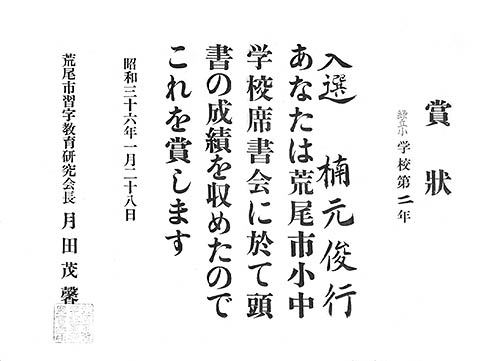 賞狀
緑丘小学校第二年
入選 楠元俊行
あなたは荒尾市小中
学校席書会に於て頭
書の成績を収めたので
これを賞します
昭和三十六年一月二十八日
荒尾市習字教育研究会長 月田茂馨